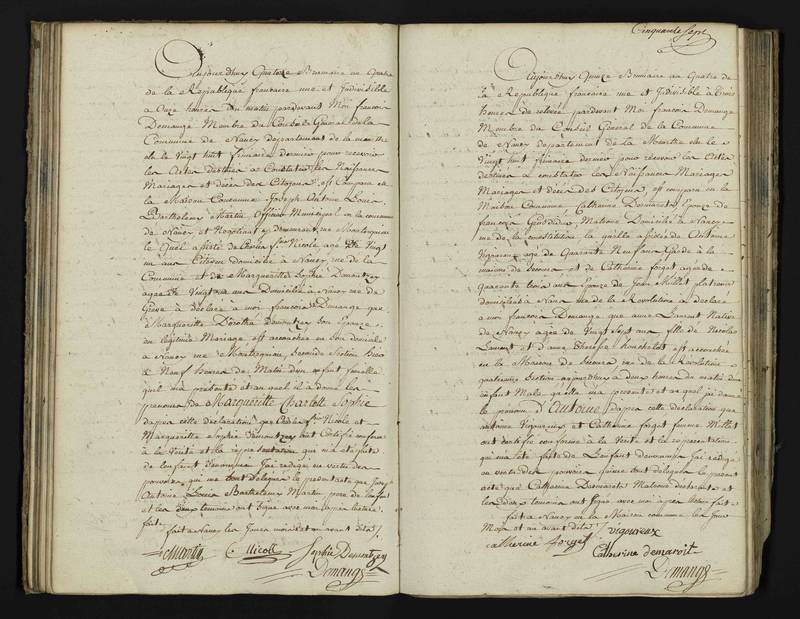 Aujourd'huy Quatorze Brumaire an Quatre
de la Republique francaise une et Indivisible
a Onze heures du matin pardevant Moi francois
Demange Membre du Conseil General de la
Commune de Nancy departement de la meurthe
elu le Vingt huit frimaire dernier pour recevoir
les Actes destinés a Constater les Naissances
Mariages et décès des Citoyens, est Comparu en
la Maison Commune Joseph Antoine Louis
Barthelemy Martin Officier Municipal en la commune
de Nancy et Negotiant y demeurant rue
le quel assisté de Nicole agé de Vingt
un ans Citoyen Domicilié a Nancy rue de la
Commune et de Marguerite Sophie Domontzey
agée de Vingt un ans Domiciliée a Nancy rue de
Grève a déclaré a moi francois Demange que
Marguerite Dorothée Domontzey son Epouse
en légitime Mariage est accouchée en son domicile
a Nancy rue Seconde Section hier
a Neuf heures du Matin d'un enfant femelle
quil ma présenté et au quel il a donné les
prenoms de Marguerite Charlotte Sophie
dapres cette déclaration que Nicole et
Marguerite Sophie Domontzey ont Certifié conforme
à la Vérité et la représentation qui m'a été faite
de l'enfant dénommé Jai redigé en vertu des
pouvoirs qui me sont délégués le présent acte que Joseph
Antoine Louis Barthelemy Martin pere de l'enfant
et les deux temoins ont signé avec moi apres lecture
faite
fait a Nancy les Jours mois et an avant dits
Martin C. Nicole Sophie Domontzey
Demange
Cinquante Sept
Aujourd'huy Quinze Brumaire an Quatre de
la Republique francaise une et Indivisible à trois
heures de relevée pardevant Moi francois Demange
Membre du Conseil General de la Commune
de Nancy departement de la Meurthe elu le
Vingt huit frimaire dernier pour recevoir les Actes
destinés a constater les Naissances Mariages
Mariages et décès des Citoyens, est comparu en la
Maison Commune Catherine Demaroit Epouse de
francois Matrone Domiciliée a Nancy
rue de la constitution la quelle assistée de Antoine
Vigoureux agé de Quarante Neuf ans Garde à la
maison de Secours et de Catherine forget agée de
Quarante trois ans Epouse de Jean Millot platrier
domiciliés a Nancy rue de la Revolution a déclaré
a moi francois Demange que anne Laurent Native
de Nancy agée de Vingt Sept ans fille de Nicolas
Laurent et d'anne Therese est accouchée
en la Maison de Secours rue de la Révolution
quatrieme Section aujourd'huy à deux heures du matin d'un
enfant Male quelle ma presenté et au quel jai donné
le prenom d'Antoine dapres cette declaration que
antoine Vigoureux et Catherine forget femme Millot
ont certifié conforme à la Verité et la representation
qui m'a été faite de l'enfant dénommé Jai redigé
en vertu des pouvoirs qui me sont délégués le present
acte que Catherine Demaroit Matrone déclarante et
les deux temoins ont signé avec moi apres lecture faite
fait a Nancy en la Maison commune les Jours
Mois et an avant dits vigoureux
catherine forget
Catherine demaroit
Demange